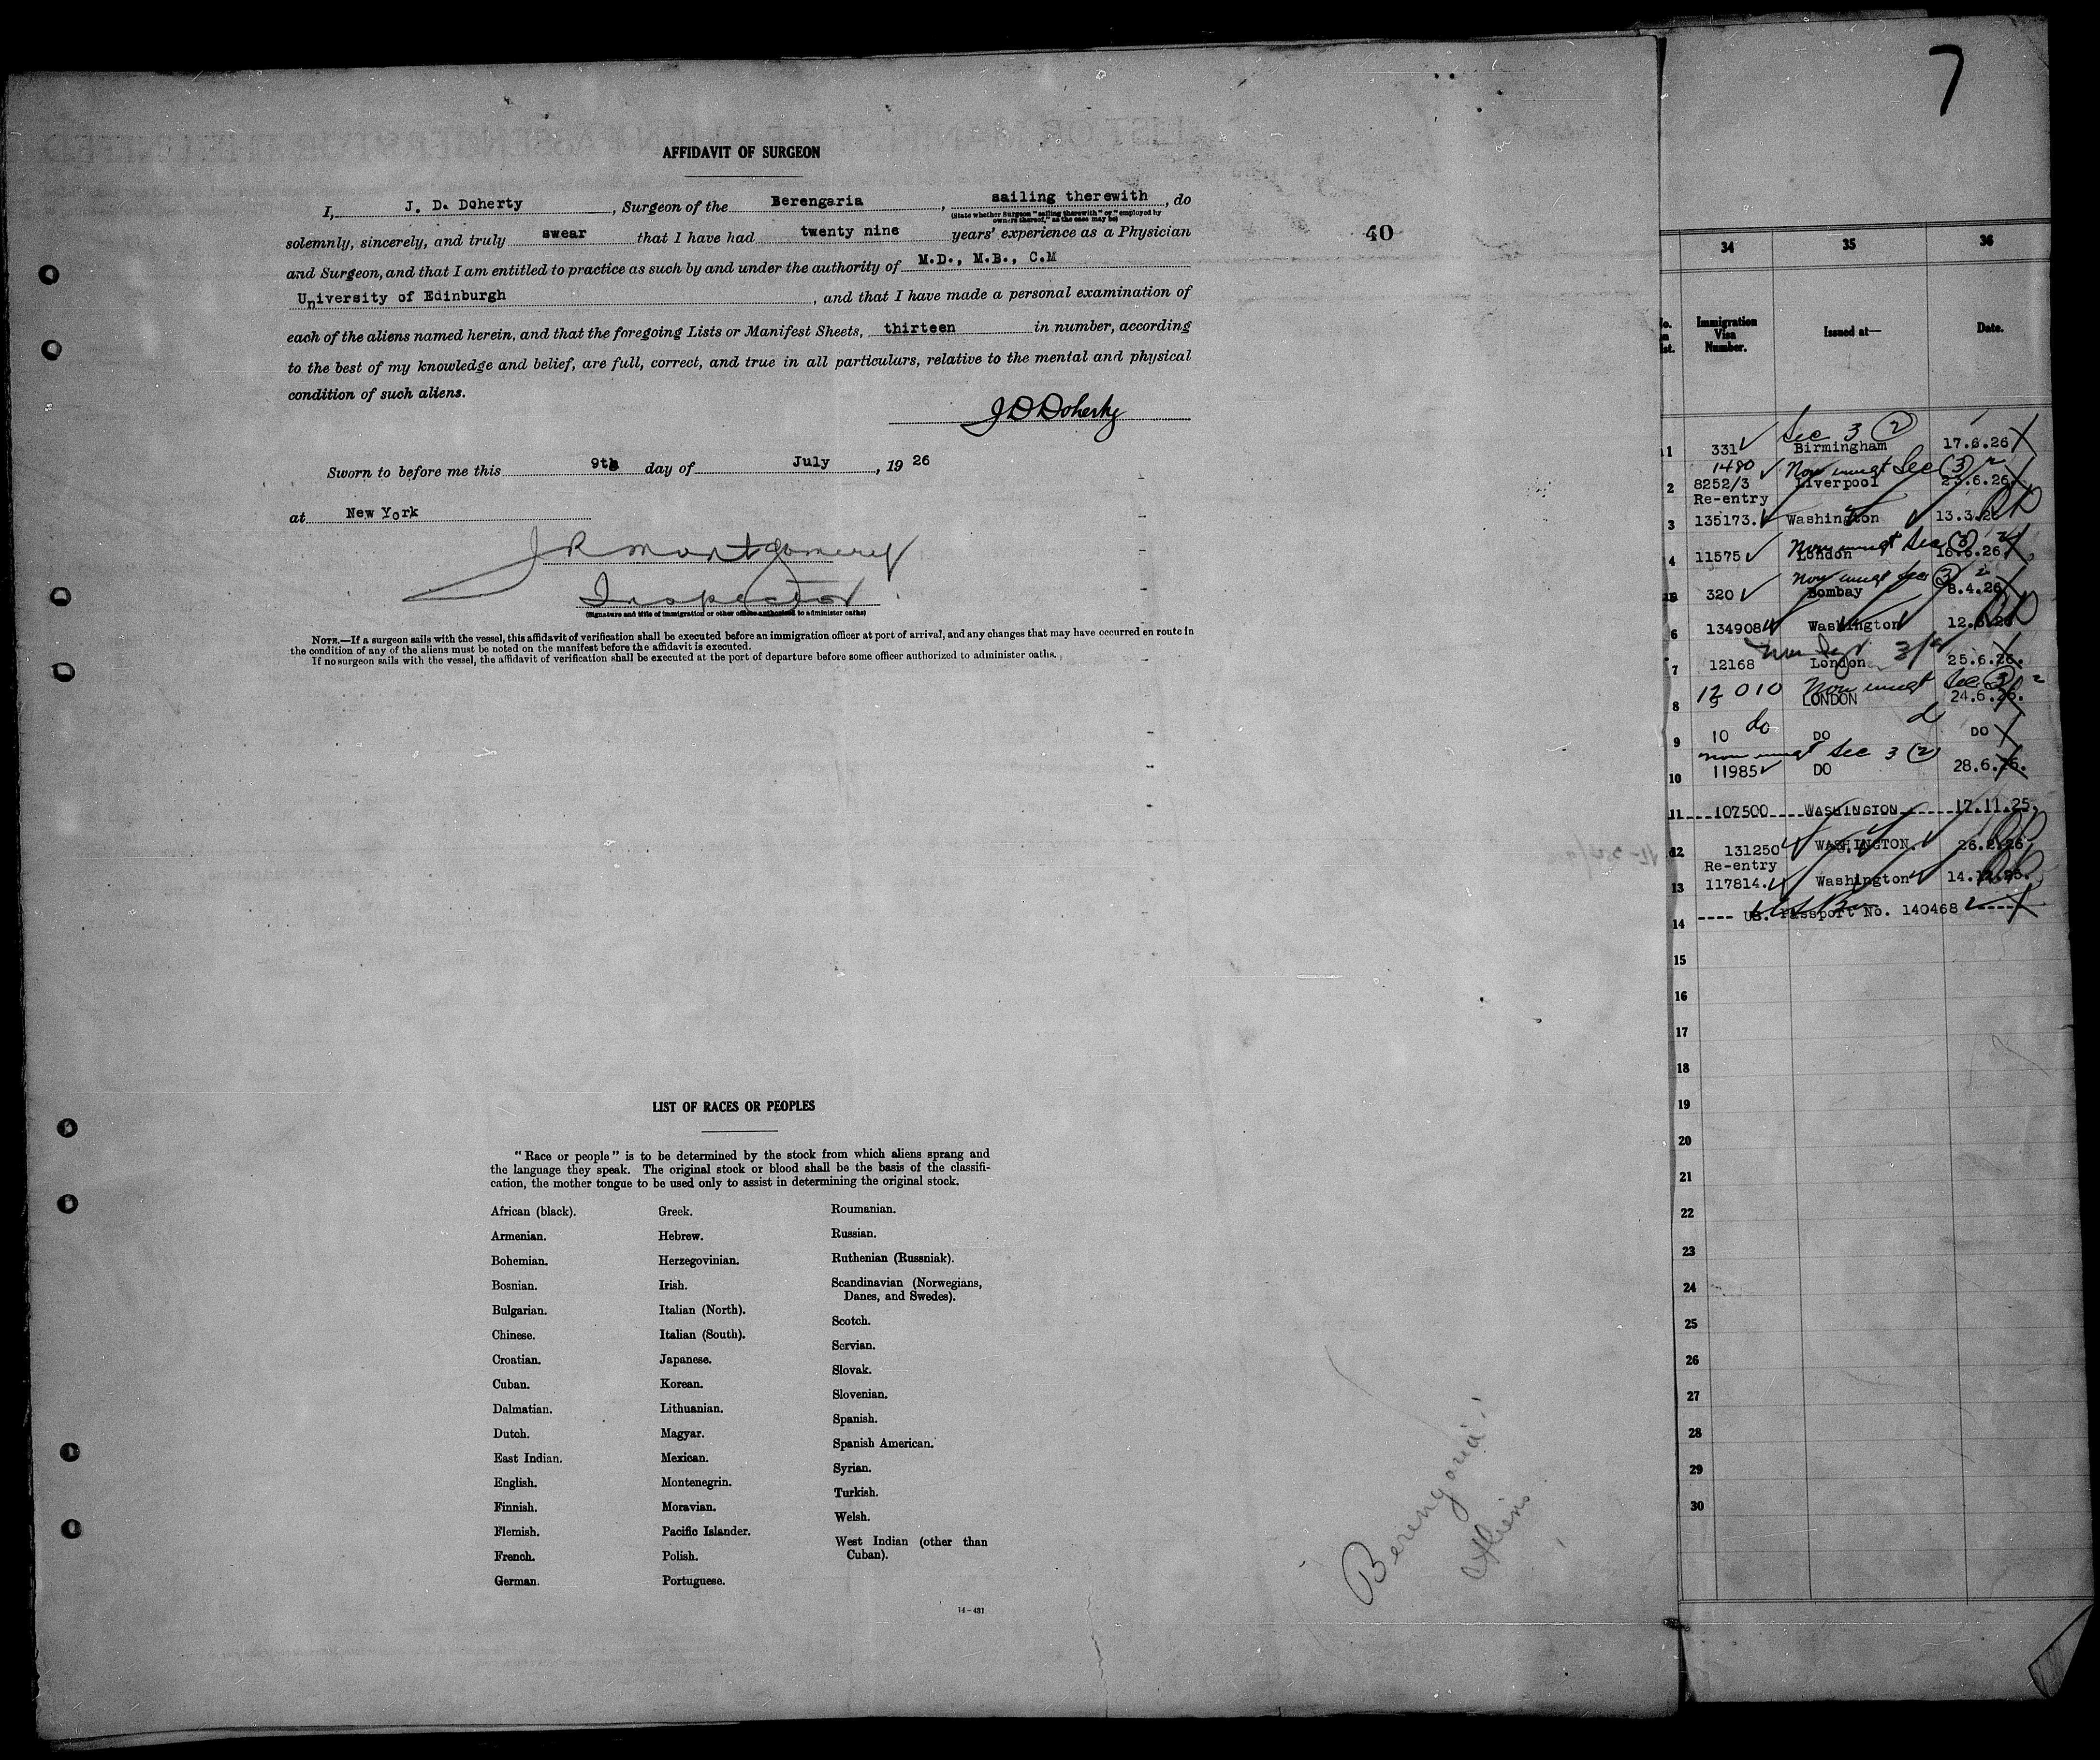 7
AFFIDAVIT OF SURGEON
I, J. D. Doherty, Surgeon of the Berengaria, sailing therewith, do
(State whether Surgeon "sailing therewith" or "employed by
owners thereof," as the case may be)
solemnly, sincerely, and truly swear that I have had twenty nine years' experience as a Physician
40
and Surgeon, and that I am entitled to practice as such by and under the authority of M.D., M.B., C.M
University of Edinburgh, and that I have made a personal examination of
each of the aliens named herein, and that the foregoing Lists or Manifest Sheets, thirteen in number, according
to the best of my knowledge and belief, are full, correct, and true in all particulars, relative to the mental and physical
condition of such aliens.
J D Doherty
Sworn to before me this 9th day of July, 19 26
at New York
J R Montgomery
Inspector
(Signature and title of immigration or other officer authorized to administer oaths)
NOTE.—If a surgeon sails with the vessel, this affidavit of verification shall be executed before an immigration officer at port of arrival, and any changes that may have occurred en route in
the condition of any of the aliens must be noted on the manifest before the affidavit is executed.
If no surgeon sails with the vessel, the affidavit of verification shall be executed at the port of departure before some officer authorized to administer oaths.
LIST OF RACES OR PEOPLES
"Race or people" is to be determined by the stock from which aliens sprang and
the language they speak. The original stock or blood shall be the basis of the classifi-
cation, the mother tongue to be used only to assist in determining the original stock.
African (black).
Armenian.
Bohemian.
Bosnian.
Bulgarian.
Chinese.
Croatian.
Cuban.
Dalmatian.
Dutch.
East Indian.
English.
Finnish.
Flemish.
French.
German.
Greek.
Hebrew.
Herzegovinian.
Irish.
Italian (North).
Italian (South).
Japanese.
Korean.
Lithuanian.
Magyar.
Mexican.
Montenegrin.
Moravian.
Pacific Islander.
Polish.
Portuguese.
Roumanian.
Russian.
Ruthenian (Russniak).
Scandinavian (Norwegians,
Danes, and Swedes).
Scotch.
Servian.
Slovak.
Slovenian.
Spanish.
Spanish American.
Syrian.
Turkish.
Welsh.
West Indian (other than
Cuban).
14-431
Berengaria
Aliens
34 35 36
Immigration Visa Number. Issued at— Date.
Sec 3 (2)
1 331 Birmingham 17.6.26
1490 Non immgt Sec (3) 2
2 8252/3 Liverpool 23.6.26.
Re-entry
3 135173. Washington 13.3.26
Non immgt Sec (3) 2
4 11575 London 16.6.26
Non immgt Sec (3) 2
320 Bombay 8.4.26
6 134908 Washington 12.6.26
7 12168 London 25.6.26.
Non immgt Sec (3) 2
8 12 010 LONDON 24.6.26.
do
9 10 DO DO
non immgt Sec 3 (2)
10 11985 DO 28.6.26.
11 107500 WASHINGTON 17.11.25.
12 131250 WASHINGTON. 26.2.26
Re-entry
13 117814. Washington 14.12.25.
14 US. Passport No. 140468
15
16
17
18
19
20
21
22
23
24
25
26
27
28
29
30